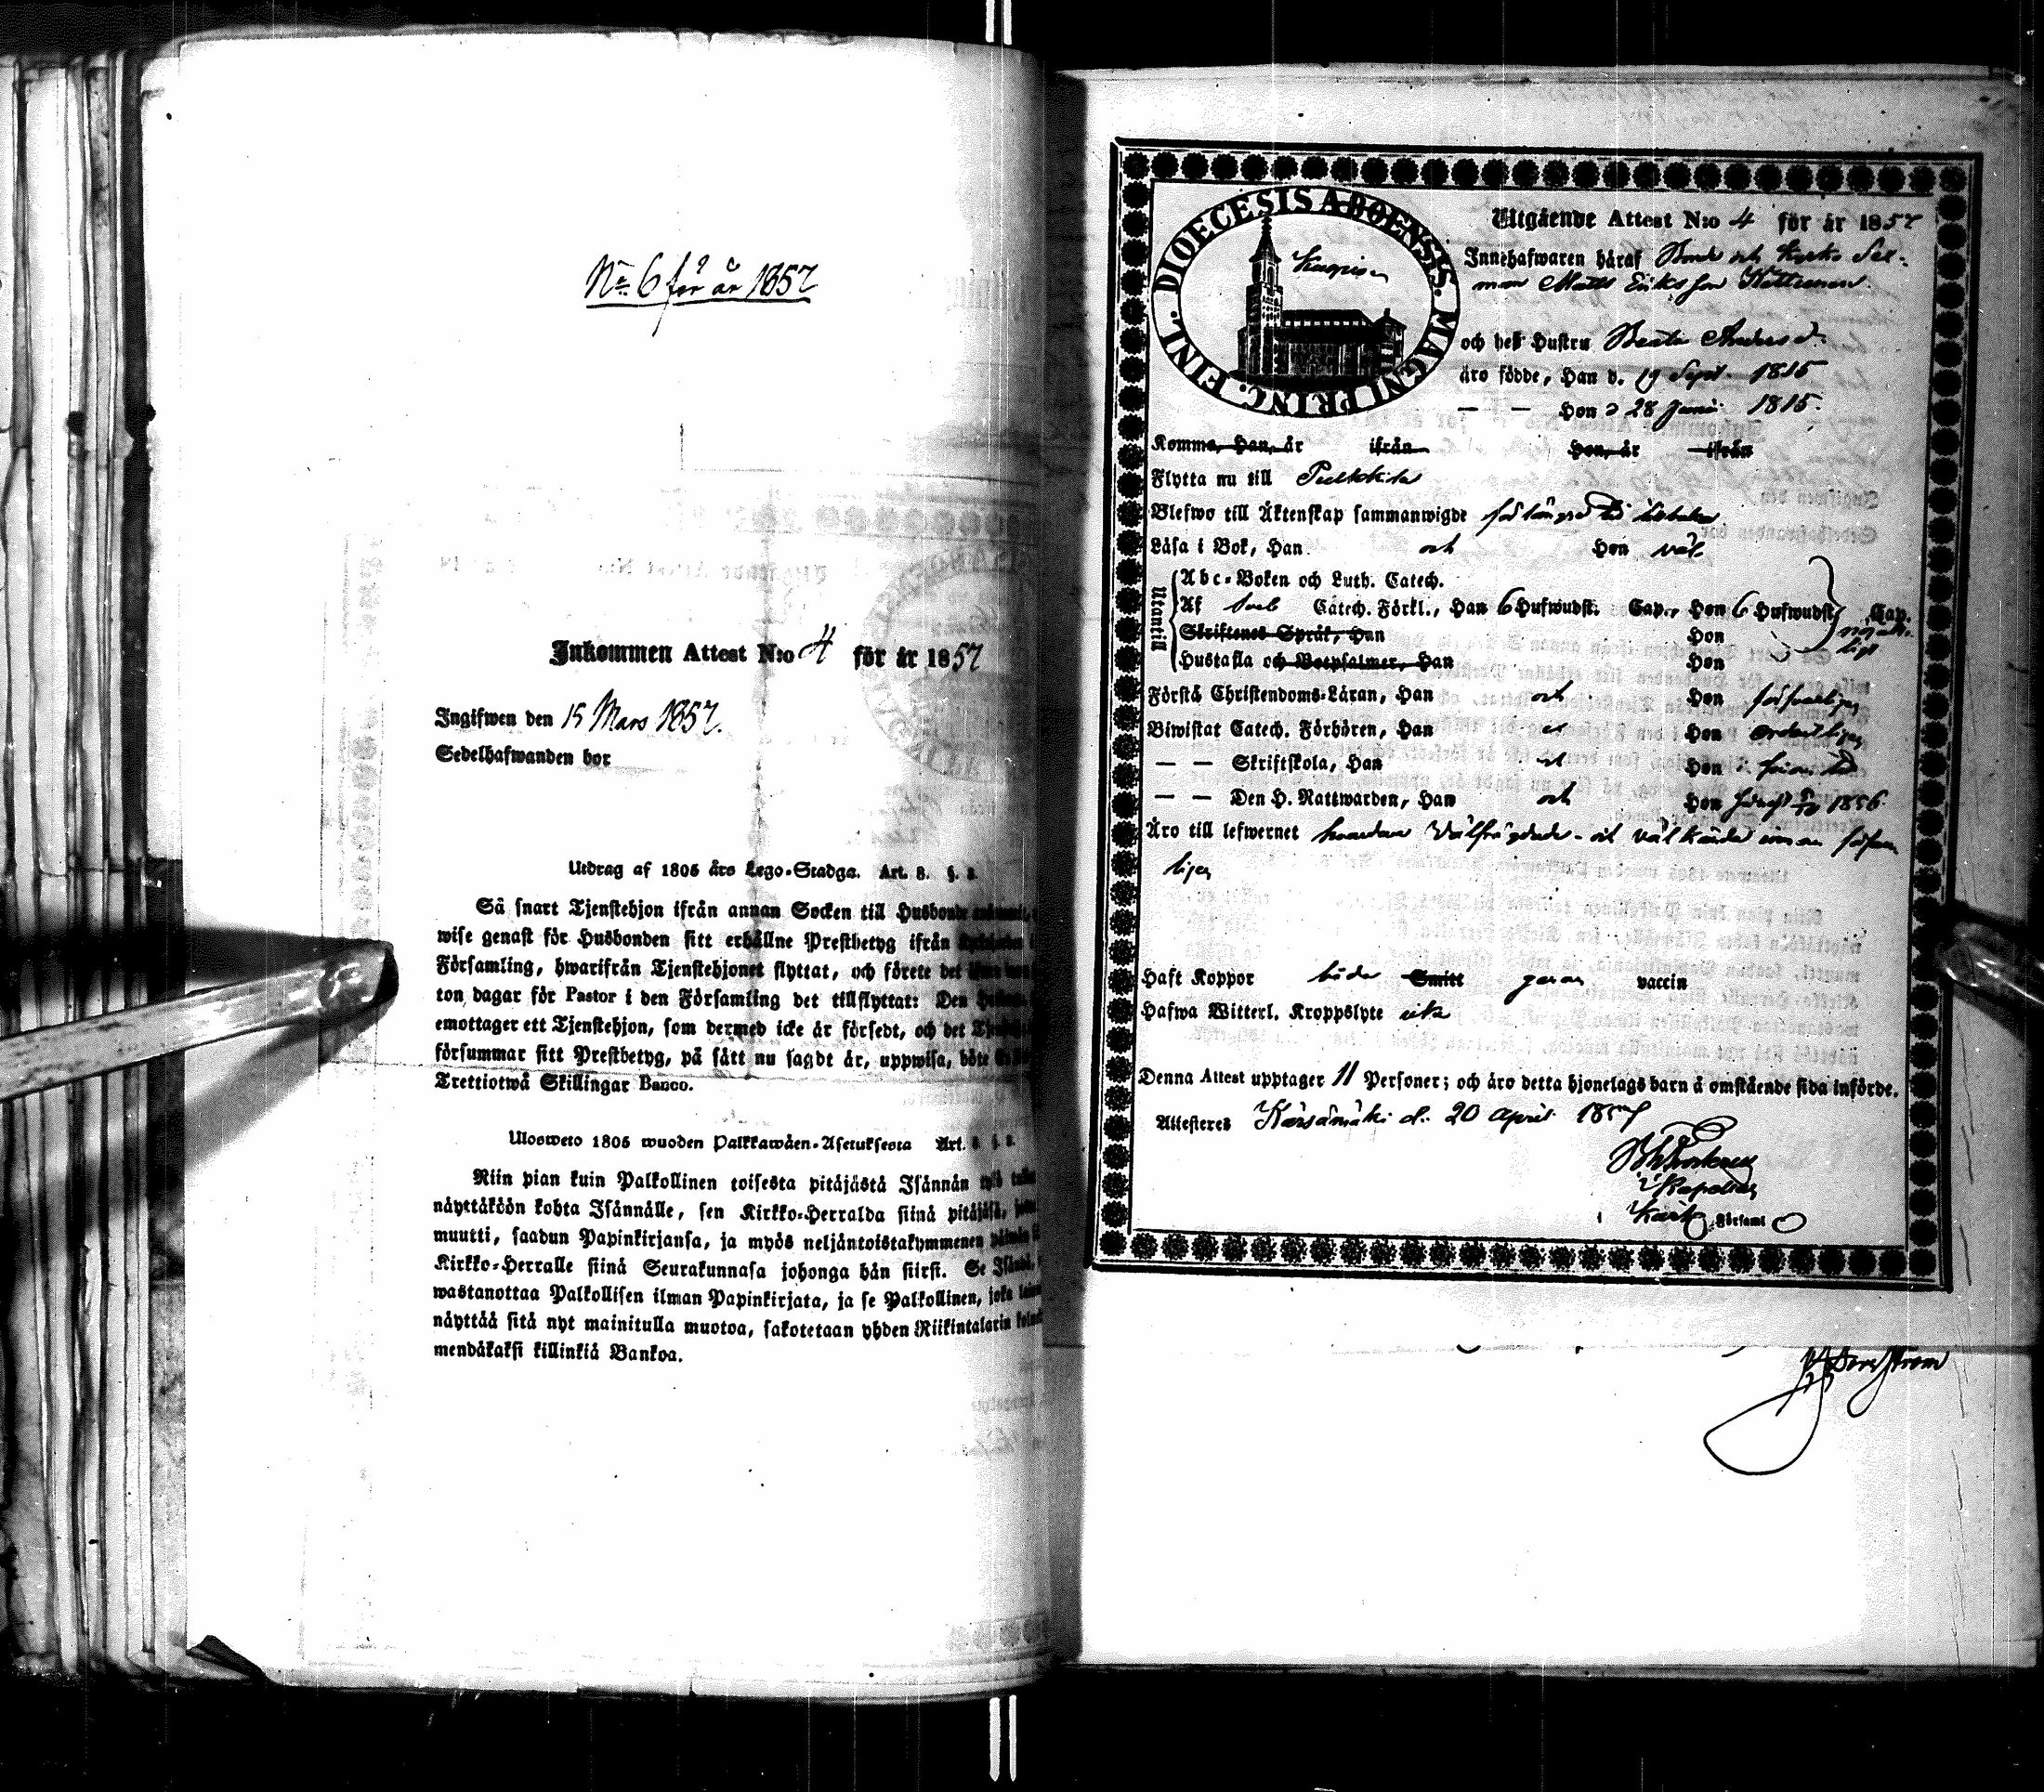 No 6 för år 1857
Inkommen Attest N:o 4 för år 1857
Ingifwen den 15 Mars 1857.
Sedelhafwanden bor
Utdrag af 1805 års Lego-Stadga. Art. 8. §.
Så snart Tjenstehjon ifrån annan Socken till Husbonde
wise genast för Husbonden sitt erhållne Prestbetyg ifrån
Församling, hwarifrån Tjenstehjonet flyttat, och förete det
ton dagar för Pastor i den Församling det tillflyttat: Den
emottager ett Tjenstehjon, som dermed icke är försedt, och det
försummar sitt Prestbetyg, på sätt nu sagdt är, uppwisa, böte
Trettiotwå Skillingar Banco.
Ulosweto 1805 wuoden Palkkawäen-Asetuksesta Art.
Niin pian kuin Palkollinen toisesta pitäjästä Isännän
näyttäköön kohta Isännälle, sen Kirkko-Herralda siinä pitäjäsä,
muutti, saadun Papinkirjansa, ja myös neljäntoistakymmenen
Kirkko-Herralle siinä Seurakunnasa johonga hän siirsi. Se
wastanottaa Palkollisen ilman Papinkirjata, ja se Palkollinen, joka
näyttää sitä nyt mainitulla muotoa, sakotetaan yhden Riikintalarin
mendäkaksi killinkiä Bankoa.
DIOECESIS ABOENSIS. MAGNI PRINC. FINL.
Utgående Attest N:o 4 för år 1857
Innehafwaren häraf Bonde och Kyrko Sex-
man Matts Eriksson
och des Hustru Beata Andersd.
äro födde, Han d. 19 Sept. 1815
— — Hon d 28 Junii 1815.
Komma, Han, år ifrån Hon, år ifrån
Flytta nu till Pulkkila
Blefwo till Äktenskap sammanwigde för längre tid tillbaka
Läsa i Bok, Han och Hon väl
Utantill
Abc-Boken och Luth. Catech.
Af Catech. Förkl., Han 6 Hufwudst. Cap., Hon 6 Hufwudst. Cap.
Skriftenes Språk, Han Hon
Hustafla och Botpsalmer, Han Hon
Förstå Christendoms-Läran, Han och Hon försvarligen
Biwistat Catech. Förhören, Han och Hon ordentligen
— — Skriftskola, Han och Hon
— — Den H. Nattwarden, Han och Hon 1856.
Äro till lefwernet välfrägdade och väl kände
Haft Koppor båda Smitt genom vaccin
Hafwa Witterl. Kroppslyte icke
Denna Attest upptager 11 Personer; och äro detta hjonelags barn å omstående sida införde.
Attesteres Kärsämäki d. 20 April 1857
Församl